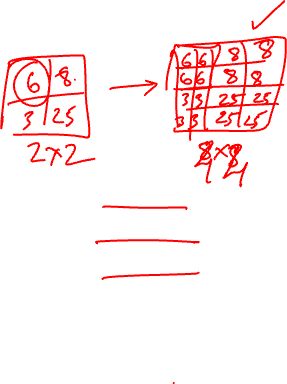 6 8
3 25
2x2
6 6 8 8
6 6 8 8
3 3 25 25
3 3 25 25
4x4